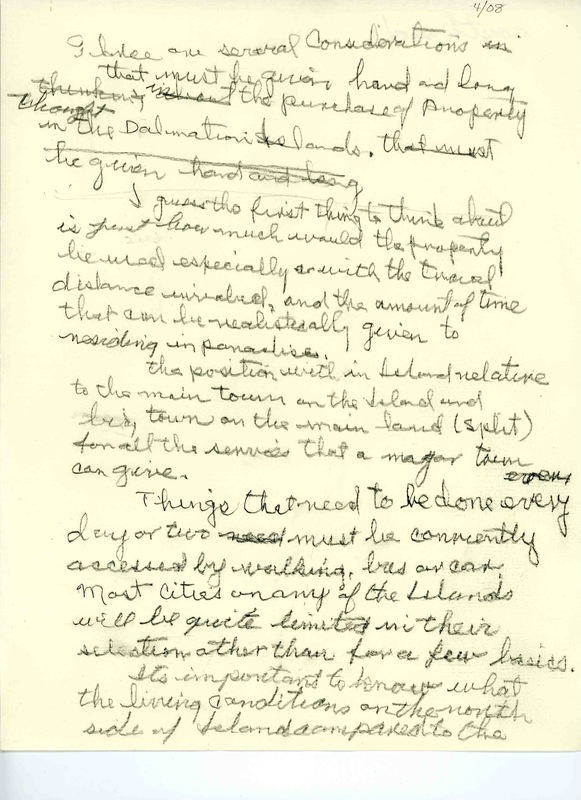 4/08
There are several Considerations in
that must be given hard and long
thinking about the purchase of Property
thought
in the Dalmation Islands. that must
be given hard and long
I guess the first thing to think about
is just how much would the property
be used especially with the travel
distance involved, and the amount of time
that can be realistically given to
residing in paradise.
the position with in Island relative
to the main town on the Island and
big town on the main land (split)
for all the services that a magor town
can give. even
Things that need to be done every
day or two need must be conviently
accessed by walking, bus or car.
Most Cities on any of the Islands
will be quite limited in their
selection other than for a few basics.
Its important to know what
the living conditions on the north
side of Island compared to the